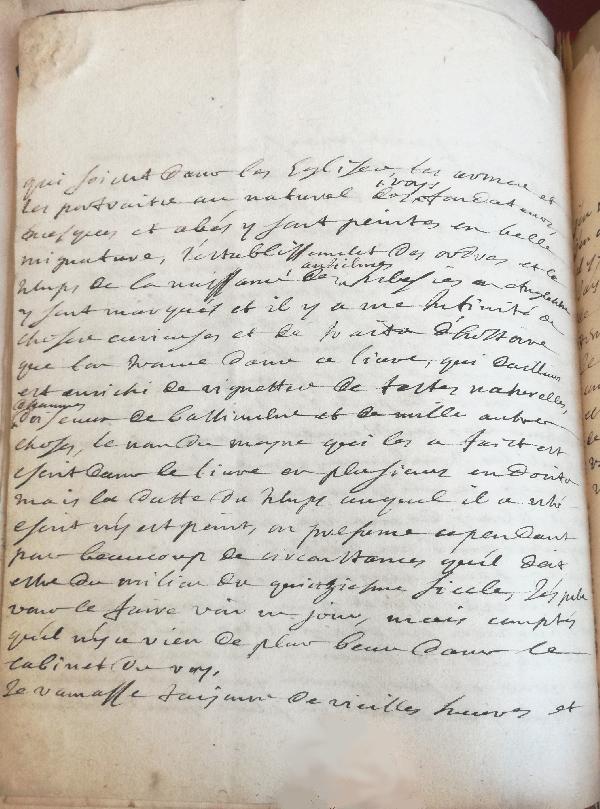 qui soient dans les Eglises, les armes et
les portraits au naturel des roys fondateurs,
evesques et abés y sont peintes en belle
mignature, l'establissement des ordres et le
temps de la naissance des antiennes en angleterre
y sont marqués et il y a une infinité de
choses curieuses et de traits d'histoire
que lon trouve dans ce livre, qui dailleurs
est enrichi de vignettes de testes naturelles,
de battiments et de mille autres
choses, le nom du moyne qui les a faict est
escrit dans le livre en plusieurs endroits
mais la datte du temps auquel il a esté
escrit n'y est point, on presume cependant
par beaucoup de circonstances qu'il doit
estre du milieu du quinziesme siecle,
vous le faire voir un jour, mais comptés
qu'il n'y a rien de plus beau dans le
cabinet du roy,
Je ramasse toujours de vieilles heures et